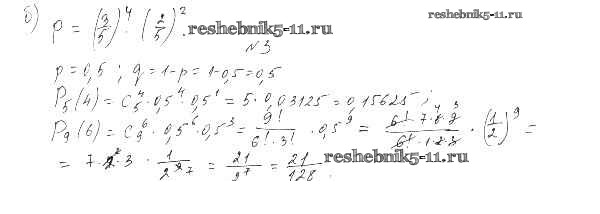 reshebnik5-11.ru
б) p = (3/5)^4 · (2/5)^2. reshebnik5-11.ru
N 3
p = 0,5 ; q = 1 - p = 1 - 0,5 = 0,5
P_5(4) = C_5^4 · 0,5^4 · 0,5^1 = 5 · 0,03125 = 0,15625 ;
P_9(6) = C_9^6 · 0,5^6 · 0,5^3 = 9!/(6! · 3!) · 0,5^9 = (6! · 7 · 8 · 9)/(6! · 1 · 2 · 3) · (1/2)^9 =
= 7 · 2^2 · 3 · 1/2^9 = 21/2^7 = 21/128 . reshebnik5-11.ru